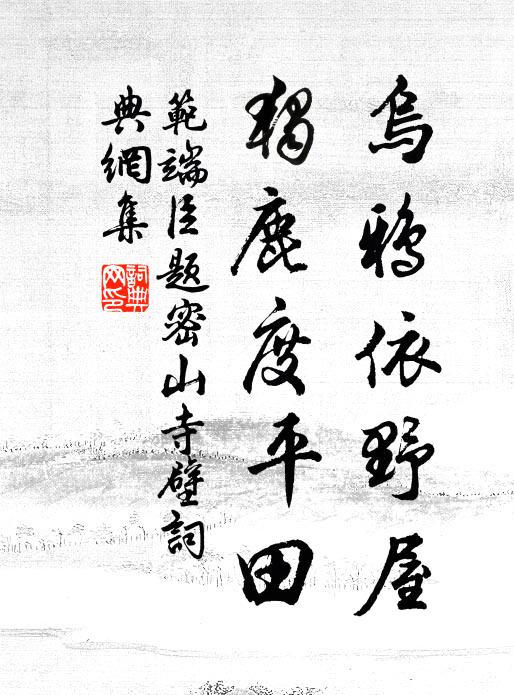 烏鴉依野屋
獨鹿度平田
範端臣題密山寺壁詞
典網集
詞典网印